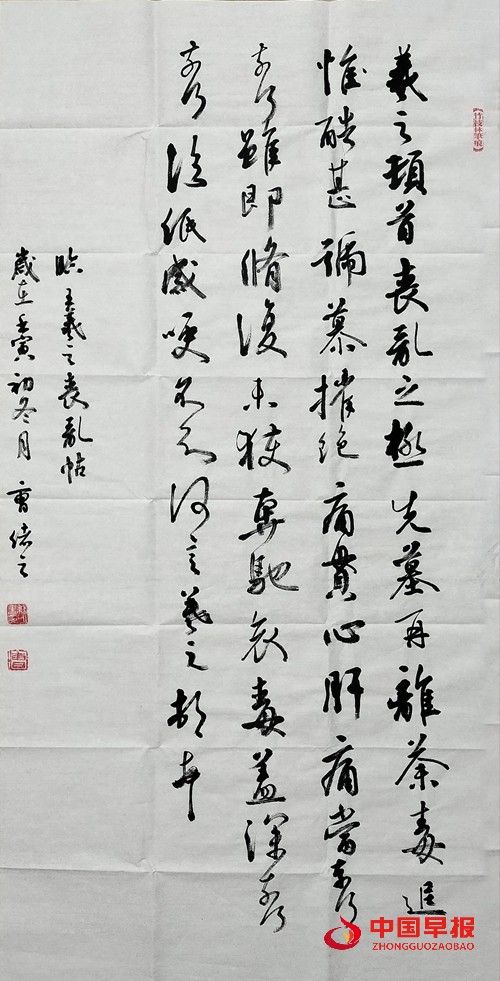 羲之頓首喪亂之極先墓再離荼毒追
惟酷甚號慕摧絕痛貫心肝痛當奈何
奈何雖即脩復未獲奔馳哀毒益深奈何
奈何臨紙感哽不知何言羲之頓首
臨王羲之喪亂帖
歲在壬寅初冬月 曹
中国早报
ZHONGGUOZAOBAO